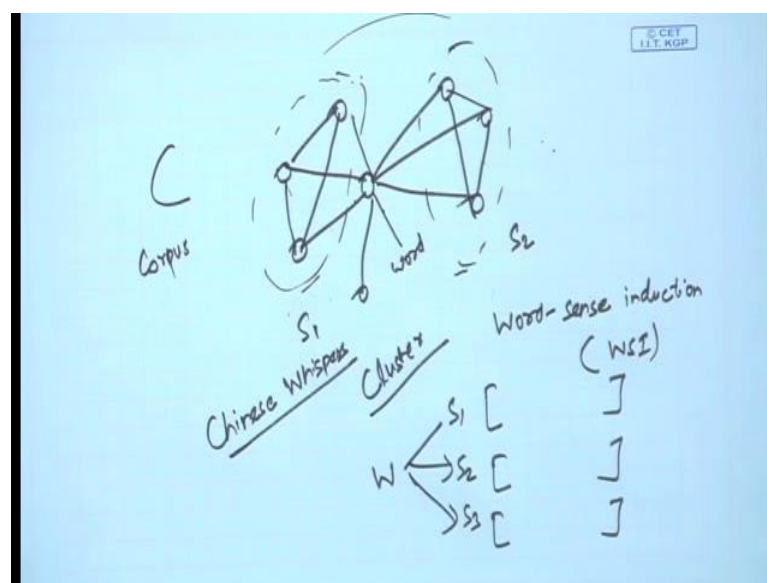 © CET
I.I.T. KGP
C
Corpus
word
S1
S2
Chinese Whispers
Cluster
Word-sense induction
(WSI)
W
S1 [ ]
S2 [ ]
S3 [ ]